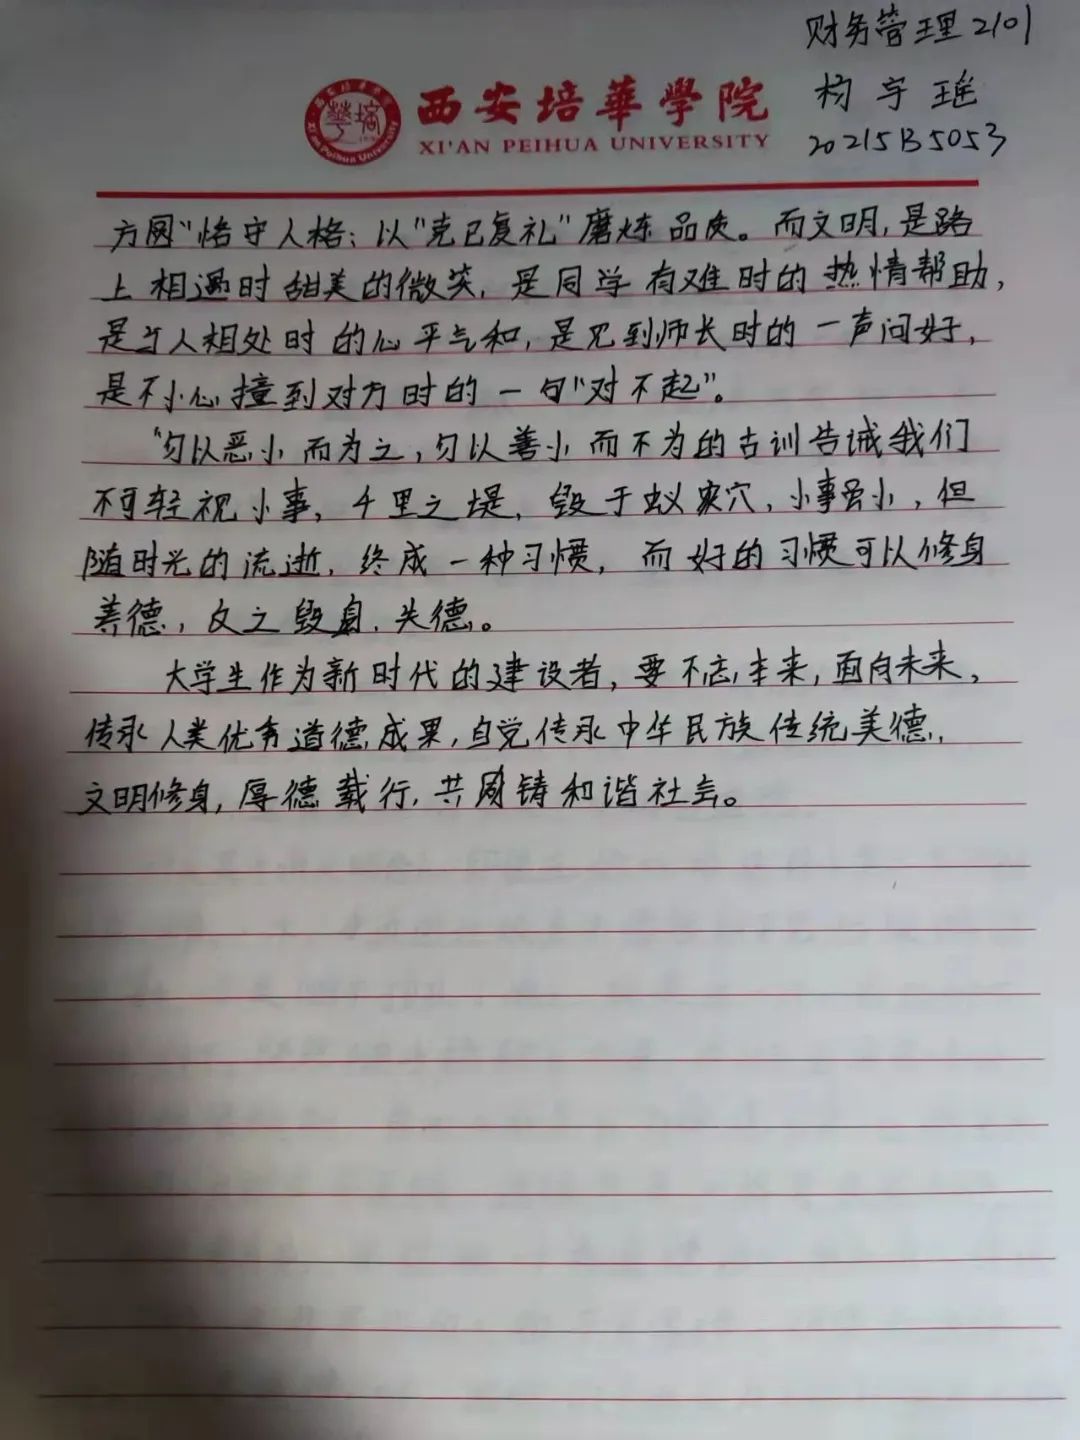 财务管理2101
杨宇瑶
20215B5053
西安培華學院
XI'AN PEIHUA UNIVERSITY
方圆"恪守人格；以"克己复礼"磨炼品质。而文明，是路
上相遇时甜美的微笑，是同学有难时的热情帮助，
是与人相处时的心平气和，是见到师长时的一声问好，
是不小心撞到对方时的一句"对不起"。
"勿以恶小而为之，勿以善小而不为的古训告诫我们
不可轻视小事，千里之堤，毁于蚁穴，小事虽小，但
随时光的流逝，终成一种习惯，而好的习惯可以修身
养德，反之毁身、失德。
大学生作为新时代的建设者，要不忘本来，面向未来，
传承人类优秀道德成果，自觉传承中华民族传统美德，
文明修身，厚德载行，共同铸和谐社会。